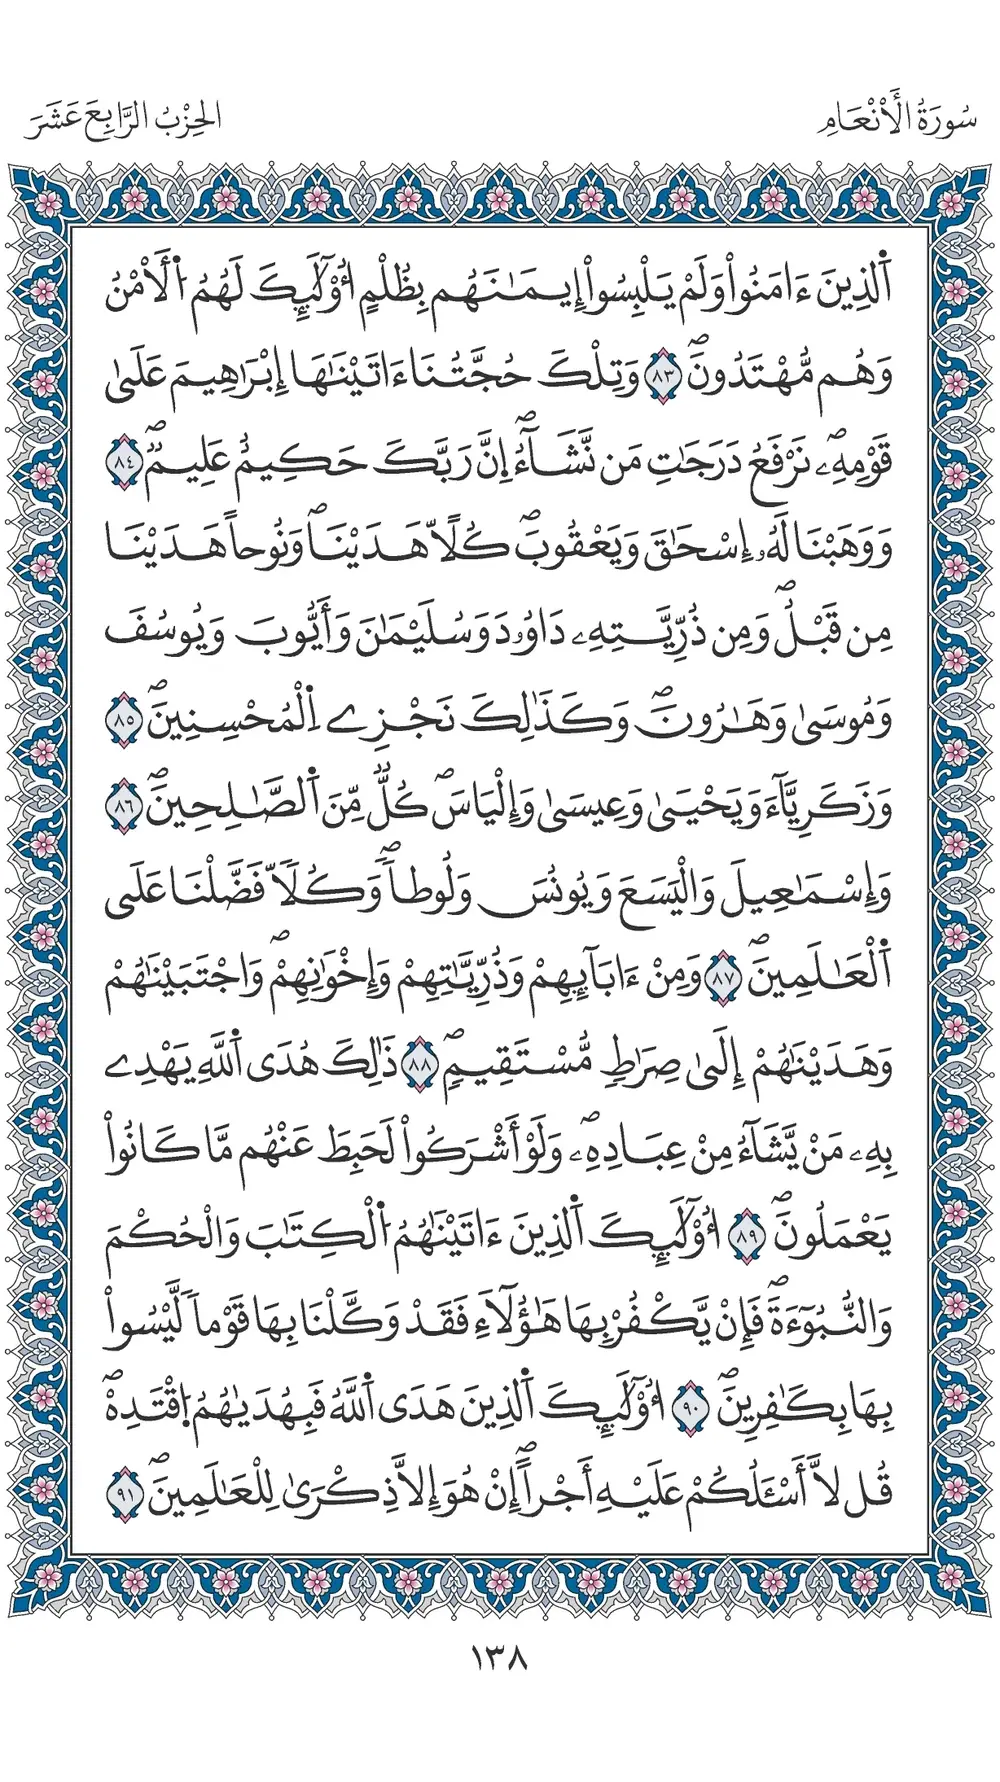 سُورَةُ الْأَنْعَامِ
الحِزْبُ الرَّابِعَ عَشَرَ
اَ۬لذِينَ ءَامَنُواْ وَلَمْ يَلْبِسُواْ إِيمَٰنَهُم بِظُلْمٍ ا۟وْلَٰٓئِكَ لَهُمُ اُ۬لَامْنُ
وَهُم مُّهْتَدُونَۖ ٨٣ وَتِلْكَ حُجَّتُنَا ءَاتَيْنَٰهَا إِبْرَٰهِيمَ عَلَىٰ
قَوْمِهِۦۖ نَرْفَعُ دَرَجَٰتِ مَن نَّشَآءُۖ اِنَّ رَبَّكَ حَكِيمٌ عَلِيمٌۖ ٨٤
وَوَهَبْنَا لَهُۥٓ إِسْحَٰقَ وَيَعْقُوبَۖ كُلّاً هَدَيْنَاۖ وَنُوحاً هَدَيْنَا
مِن قَبْلُۖ وَمِن ذُرِّيَّتِهِۦ دَاوُۥدَ وَسُلَيْمَٰنَ وَأَيُّوبَ وَيُوسُفَ
وَمُوسَىٰ وَهَٰرُونَۖ وَكَذَٰلِكَ نَجْزِے اِ۬لْمُحْسِنِينَۖ ٨٥
وَزَكَرِيَّآءَ وَيَحْيَىٰ وَعِيسَىٰ وَإِلْيَاسَۖ كُلٌّ مِّنَ اَ۬لصَّٰلِحِينَۖ ٨٦
وَإِسْمَٰعِيلَ وَالْيَسَعَ وَيُونُسَ وَلُوطاًۖ وَكُلّاً فَضَّلْنَا عَلَى
اَ۬لْعَٰلَمِينَۖ ٨٧ وَمِنْ ءَابَآئِهِمْ وَذُرِّيَّٰتِهِمْ وَإِخْوَٰنِهِمْۖ وَاجْتَبَيْنَٰهُمْ
وَهَدَيْنَٰهُمْ إِلَىٰ صِرَٰطٍ مُّسْتَقِيمٍۖ ٨٨ ذَٰلِكَ هُدَى اَ۬للَّهِ يَهْدِے
بِهِۦ مَنْ يَّشَآءُ مِنْ عِبَادِهِۦۖ وَلَوْ أَشْرَكُواْ لَحَبِطَ عَنْهُم مَّا كَانُواْ
يَعْمَلُونَۖ ٨٩ أُوْلَٰٓئِكَ اَ۬لذِينَ ءَاتَيْنَٰهُمُ اُ۬لْكِتَٰبَ وَالْحُكْمَ
وَالنُّبُوٓءَةَۖ فَإِنْ يَّكْفُرْ بِهَا هَٰٓؤُلَآءِ فَقَدْ وَكَّلْنَا بِهَا قَوْماً لَّيْسُواْ
بِهَا بِكَٰفِرِينَۖ ٩٠ أُوْلَٰٓئِكَ اَ۬لذِينَ هَدَى اَ۬للَّهُ فَبِهُدَيٰهُمُ اُ۪قْتَدِهْۖ
قُل لَّا أَسْـَٔلُكُمْ عَلَيْهِ أَجْراًۖ إِنْ هُوَ إِلَّا ذِكْرَىٰ لِلْعَٰلَمِينَۖ ٩١
١٣٨